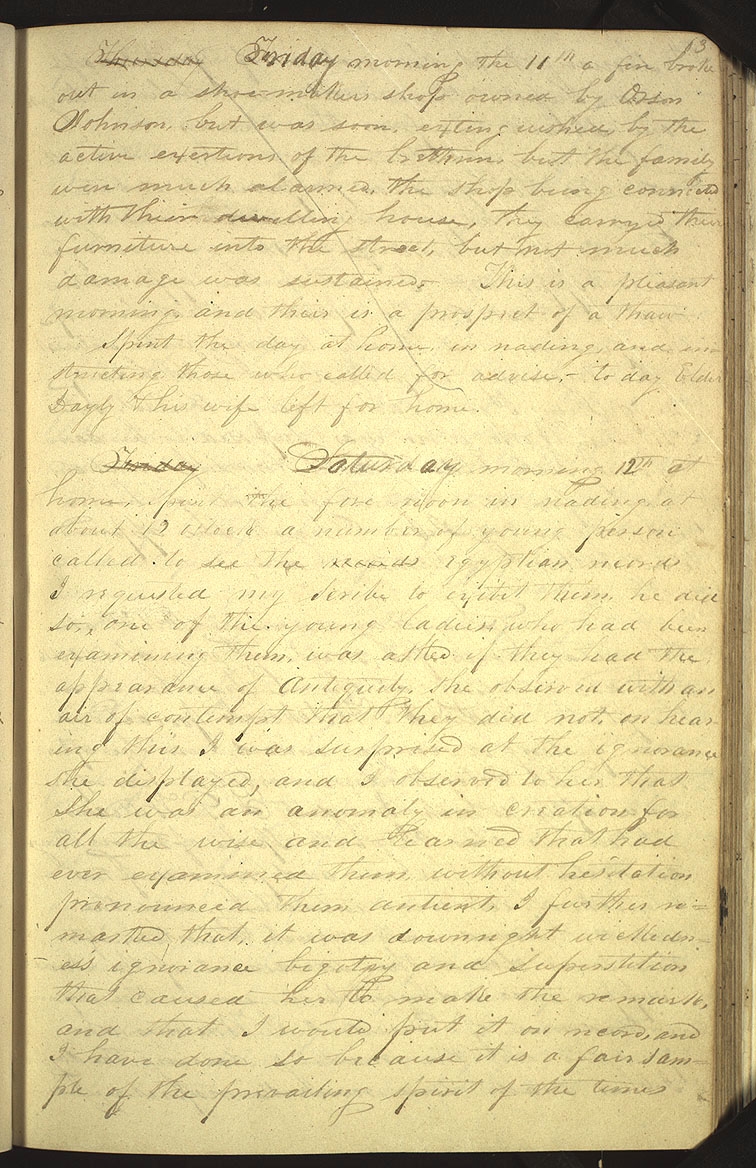 3
Thursday Friday morning the 11th a fire broke
out in a shoe-makers shop owned by Orson
Johnson, but was soon, extinguished, by the
active exertions of the brethren, but the family
were much alarmed, the shop being connected
with their dwelling house, they carryed their
furniture into the street, but not much
damage was sustained. This is a pleasant
morning, and their is a prospect of a thaw
Spent the day at home, in reading, and in-
structing those who called for advise,- to day Elder
Dayly & his wife left for home.
Friday Saturday morning 12th at
home, spent the fore noon in reading, at
about 12 oclock a number of young person
called to see the records egyptian records
I requested my Scribe to exibit them, he did
so, one of the young ladies, who had been
examining them, was asked if they had the
appearance of Antiquity, she observed with an
air of contempt that they did not, on hear-
ing this I was surprised at the ignorance
she displayed, and I observed to her that
she was an anomaly in creation for
all the wise and learned that had
ever examined them, without hesitation
pronounced them antient, I further re=
marked that, it was downright wickedn-
ess ignorance bigotry and superstition
that caused her to make the remark,
and that I would put it on record, and
I have done so because it is a fair sam-
ple of the prevailing spirit of the times